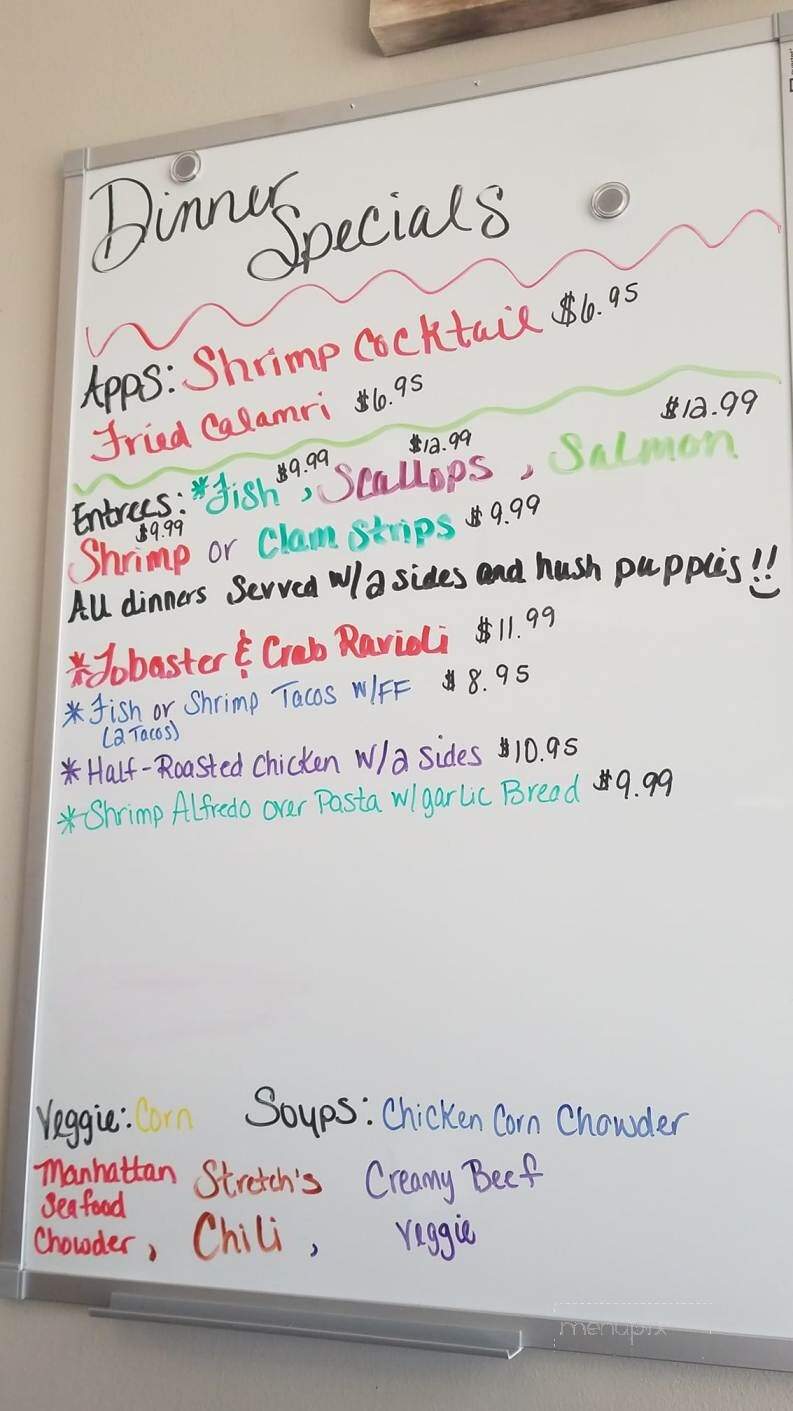 Dinner Specials
Apps: Shrimp Cocktail $6.95
Fried Calamri $6.95
Entrees: *Fish $9.99, Scallops $12.99, Salmon $12.99
Shrimp $9.99 or Clam Strips $9.99
All dinners Served w/2 sides and hush puppies!!
*Lobaster & Crab Ravioli $11.99
*Fish or Shrimp Tacos w/FF $8.95
(2 Tacos)
*Half-Roasted Chicken w/2 sides $10.95
*Shrimp Alfredo over Pasta w/garlic Bread $9.99
Veggie: Corn
Soups: Chicken Corn Chowder
Manhattan Seafood Chowder, Stretch's Chili, Creamy Beef Veggie
menupix